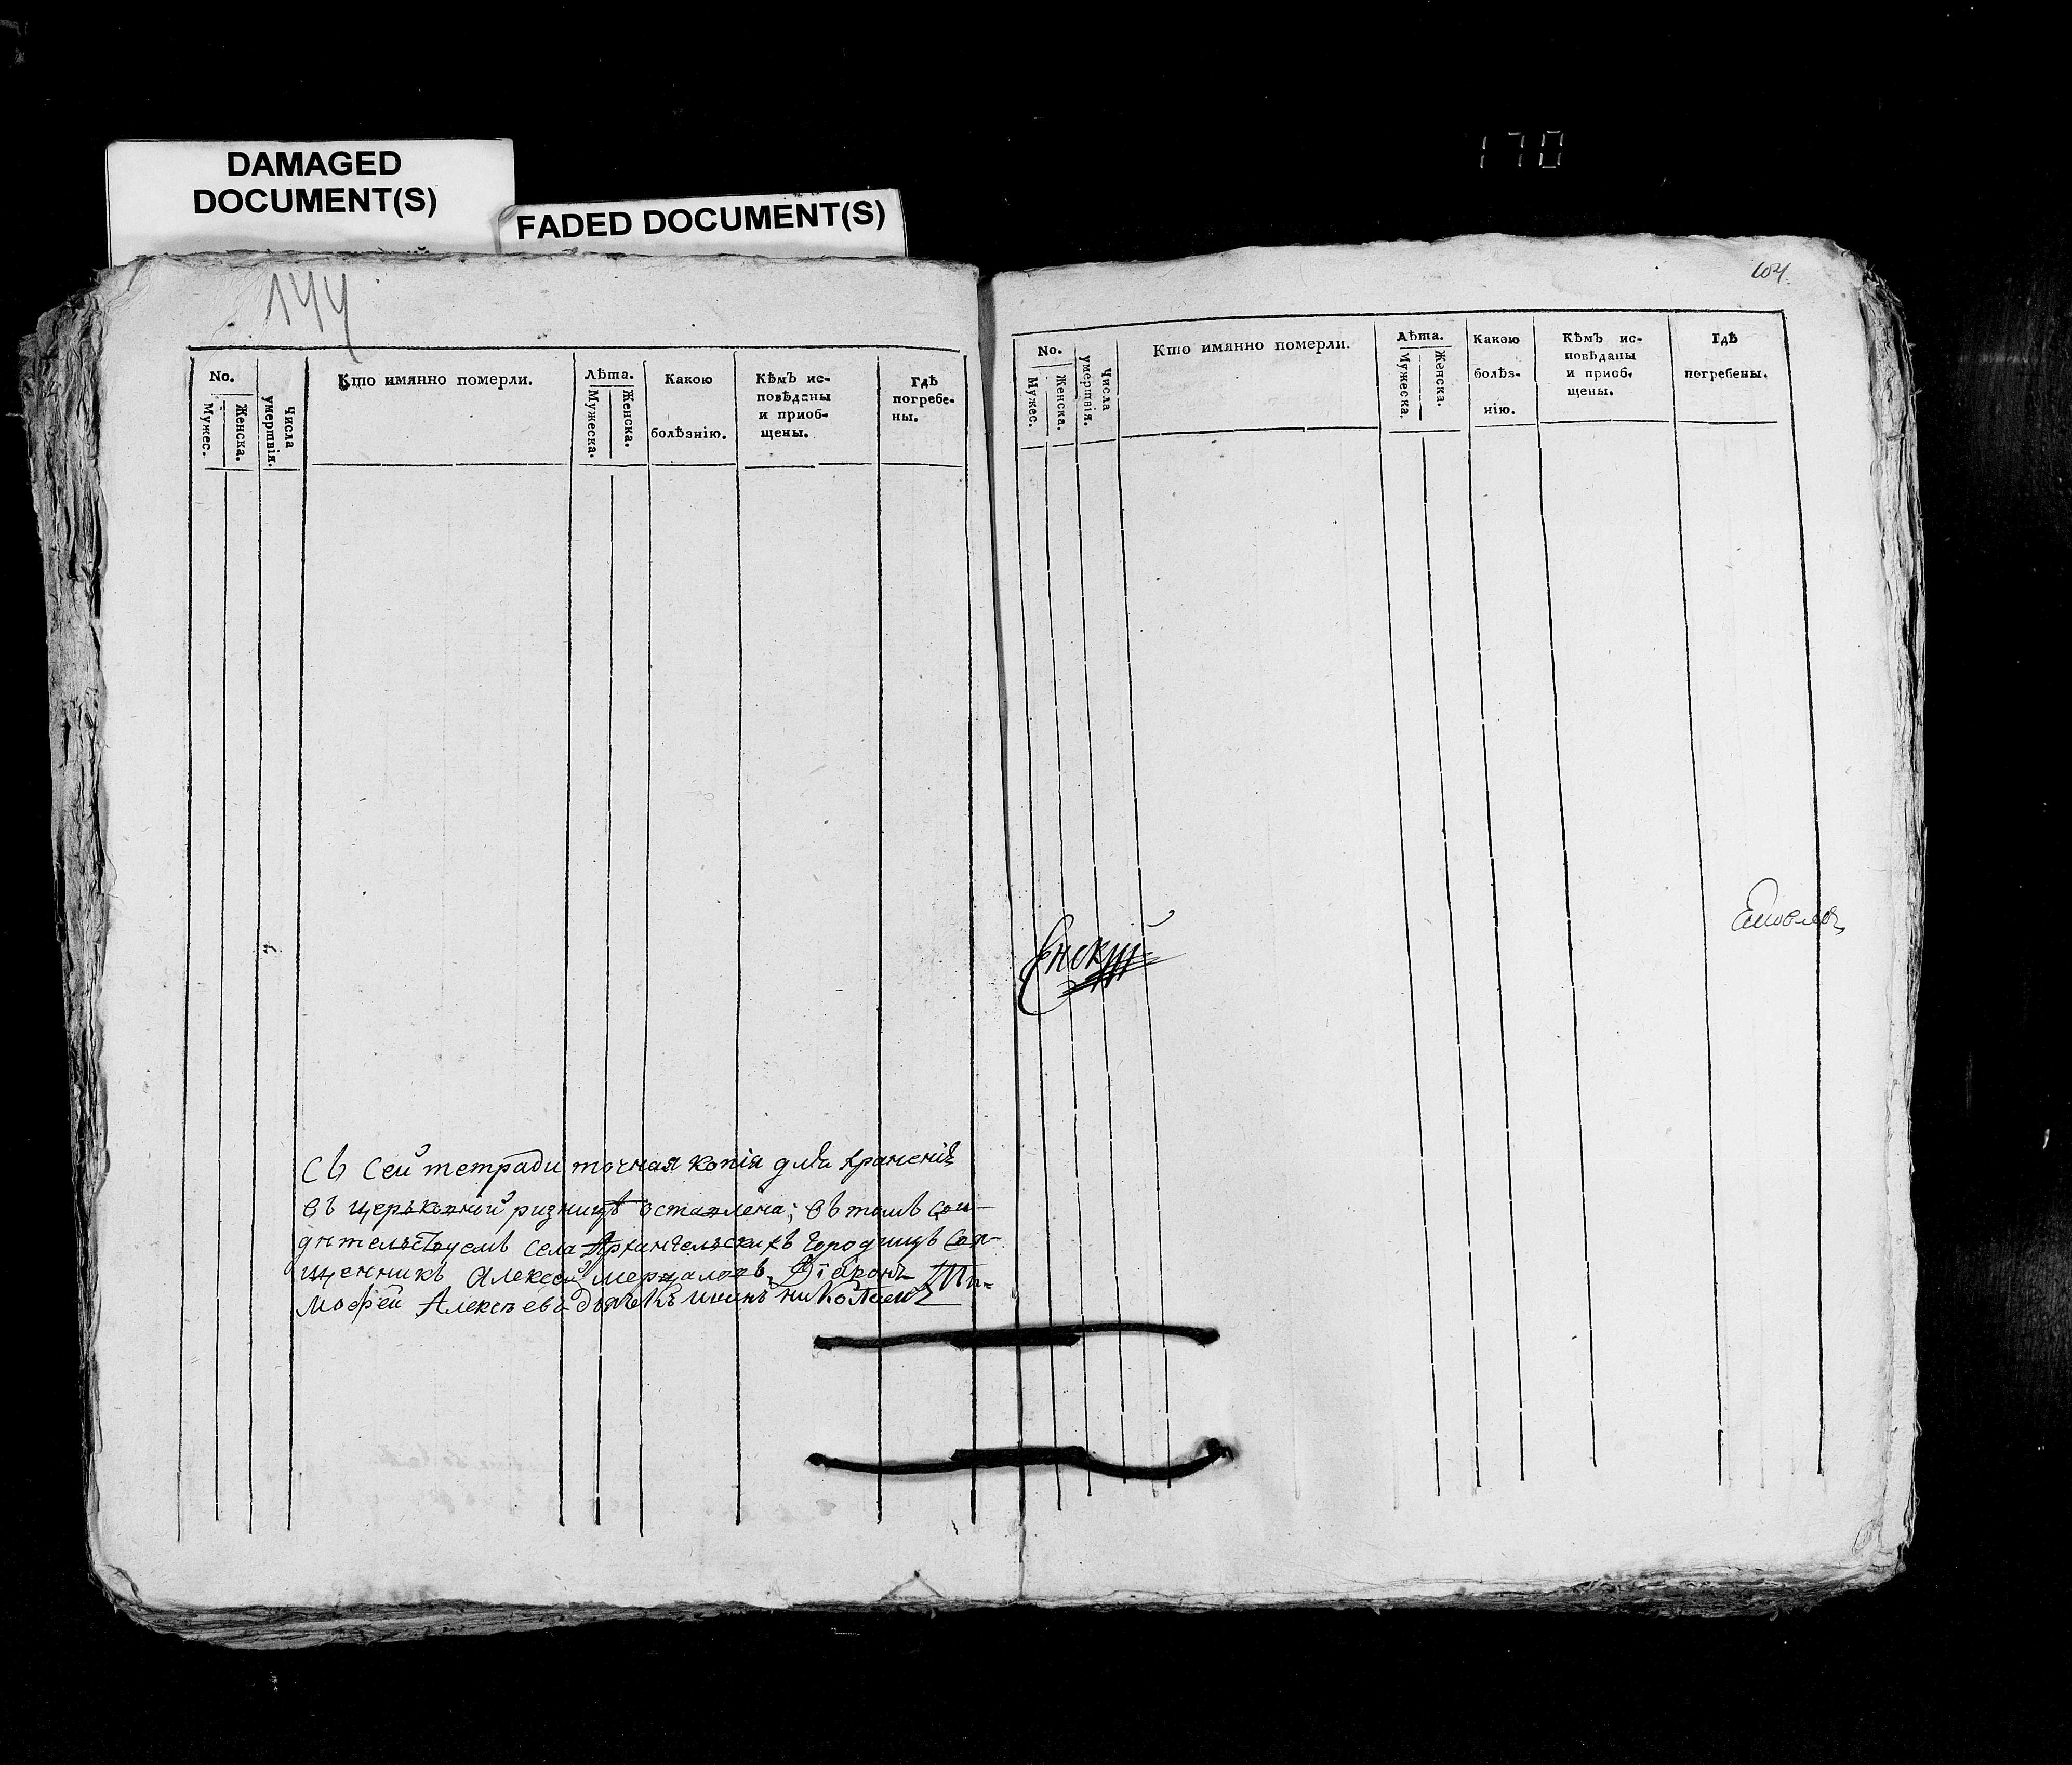 DAMAGED
DOCUMENT(S)
FADED DOCUMENT(S)
170
144
No.
Мужес.
Женска.
Числа
умертвія.
Кто имянно померли.
Лѣта.
Мужеска.
Женска.
Какою
болѣзнію.
Кѣмъ ис-
повѣданы
и приоб-
щены.
Гдѣ
погребе-
ны.
Съ сей тетради точная копія для храненія
въ церьковной ризницѣ оставлена; въ томъ сви-
дѣтельствуемъ села Архангельскихъ Городищъ Свя-
щенникъ Алексей Мерцаловъ, Діаконъ Ти-
мофей Алексѣевъ Дьячекъ Иванъ Николаевъ
No.
Мужес.
Женска.
Числа
умертвія.
Кто имянно померли.
Лѣта.
Мужеска.
Женска.
Какою
болѣз-
нію.
Кѣмъ ис-
повѣданы
и приоб-
щены.
Гдѣ
погребены.
енскій